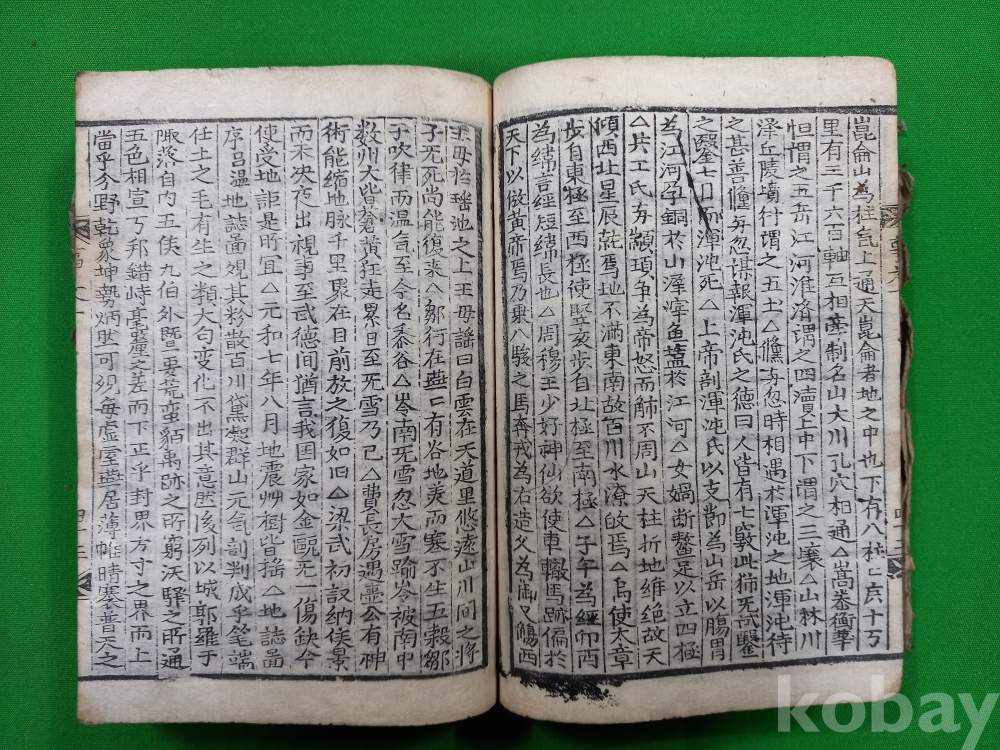 崑崙山為柱氣上通天崑崙者地之中也下有八柱〻廣十万
里有三千六百軸互相牽制名山大川孔穴相通△嵩泰衡華
恒謂之五岳江河淮濟謂之四瀆上中下謂之三壤△山林川
澤丘陵墳衍謂之五土△儵与忽時相遇於渾沌之地渾沌待
之甚善儵与忽謀報渾沌氏之德曰人皆有七竅此獨无試鑿
之鑿七日而渾沌死△上帝剖渾沌氏以支節為山岳以膓胃
為江河孕銅於山滓字魚塩於江河△女媧断鰲足以立四極
△共工氏与顓頊争為帝怒而觸不周山天柱折地維絶故天
傾西北星辰就焉地不滿東南故百川水潦故焉△禹使大章
步自東極至西極使竪亥步自北極至南極△子午為經卯酉
為緯言經短緯長也△周穆王少好神仙欲使車轍馬跡徧於
天下以倣黄帝焉乃乘八駿之馬奔戎為右造父為御又觴西
王母於瑤池之上王母謡曰白雲在天道里悠遠山川间之将
子无死尚能復来△鄒衍在燕〻有谷地美而寒不生五穀鄒
子吹律而温氣至今名黍谷△岺南无雪忽大雪踰岺被南中
数州犬皆蒼黄狂走累日至无雪乃已△費長房遇壺公有神
術能縮地脉千里聚在目前放之復如旧△梁武初設納侯景
而未决夜出視事至武德閤猶言我国家如金甌无一傷缺今
便受地詎是所冝△元和七年八月地震艸樹皆搖△地誌啚
序吕温地誌啚覌其粉散百川黛凝群山元气剖判成乎笔端
任土之毛有生之類大勻变化不出其意然後列以城郭羅于
陬落自内五侯九伯外曁要荒蛮貊禹跡之所窮沃驛之所通
五色相宣丂邦錯峙毫釐之差而下正乎封界方寸之界而上
當乎分野乾象坤勢炳然可覌每虚屋燕居薄帷晴褰普天之